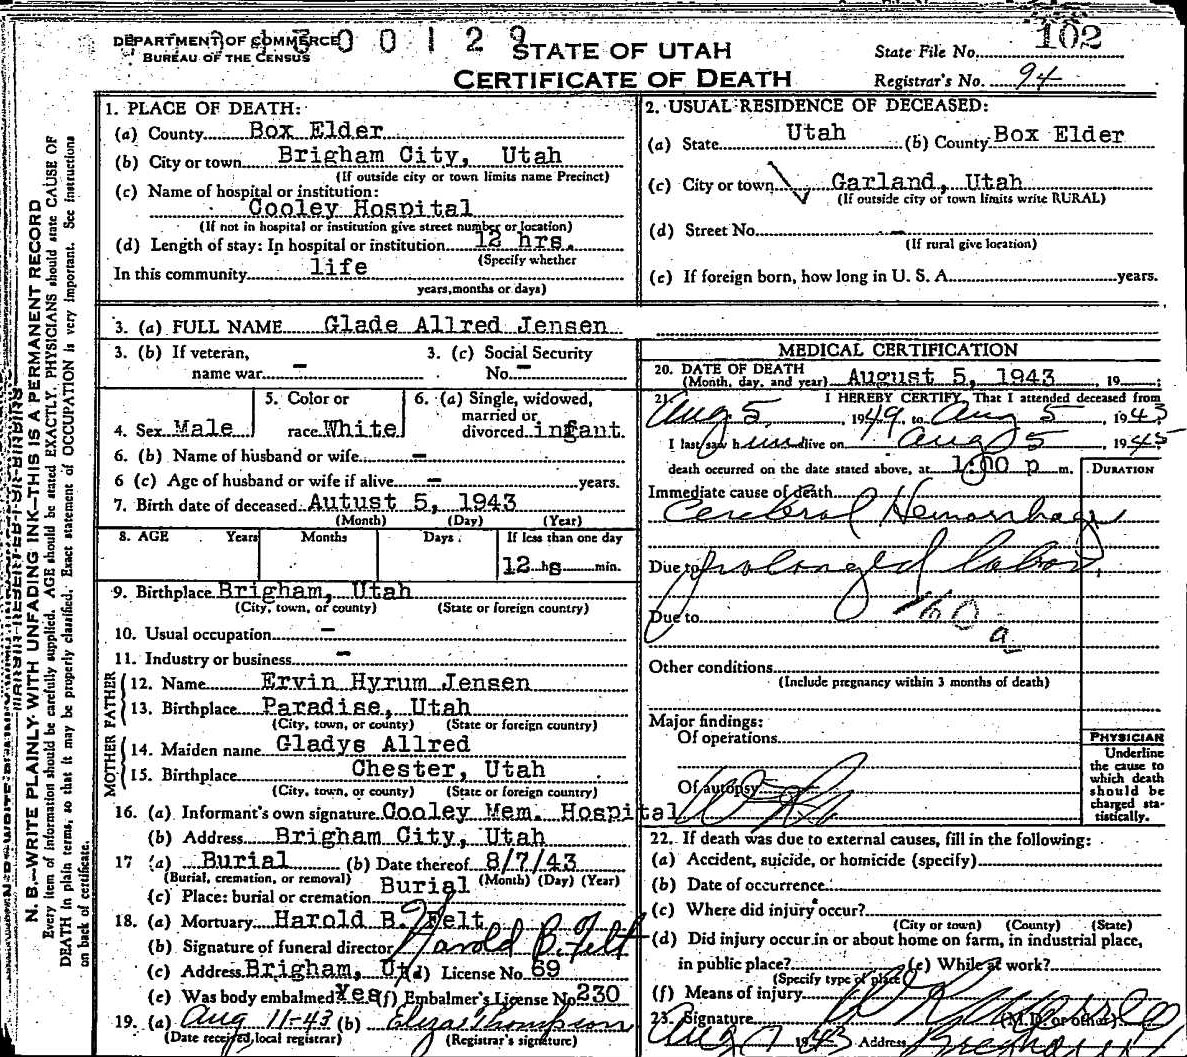 DEPARTMENT OF COMMERCE
BUREAU OF THE CENSUS
300129
STATE OF UTAH
CERTIFICATE OF DEATH
State File No. 102
Registrar's No. 94
N. B.—WRITE PLAINLY WITH UNFADING INK—THIS IS A PERMANENT RECORD
Every item of information should be carefully supplied. AGE should be stated EXACTLY. PHYSICIANS should state CAUSE OF
DEATH in plain terms, so that it may be properly classified. Exact statement of OCCUPATION is very important. See instructions
on back of certificate.
1. PLACE OF DEATH:
(a) County Box Elder
(b) City or town Brigham City, Utah
(If outside city or town limits name Precinct)
(c) Name of hospital or institution:
Cooley Hospital
(If not in hospital or institution give street number or location)
(d) Length of stay: In hospital or institution 12 hrs.
(Specify whether
In this community life
years, months or days)
2. USUAL RESIDENCE OF DECEASED:
(a) State Utah (b) County Box Elder
(c) City or town Garland, Utah
(If outside city or town limits write RURAL)
(d) Street No. -
(If rural give location)
(e) If foreign born, how long in U. S. A. years.
3. (a) FULL NAME Glade Allred Jensen
3. (b) If veteran, name war -
3. (c) Social Security No. -
4. Sex Male
5. Color or race White
6. (a) Single, widowed, married or divorced infant
6. (b) Name of husband or wife -
6 (c) Age of husband or wife if alive - years.
7. Birth date of deceased Autust 5, 1943
(Month) (Day) (Year)
8. AGE Years Months Days If less than one day
12 hs min.
9. Birthplace Brigham, Utah
(City, town, or county) (State or foreign country)
10. Usual occupation -
11. Industry or business -
FATHER
12. Name Ervin Hyrum Jensen
13. Birthplace Paradise, Utah
(City, town, or county) (State or foreign country)
MOTHER
14. Maiden name Gladys Allred
15. Birthplace Chester, Utah
(City, town, or county) (State or foreign country)
16. (a) Informant's own signature Cooley Mem. Hospital
(b) Address Brigham City, Utah
17 (a) Burial (b) Date thereof 8/7/43
(Burial, cremation, or removal) (Month) (Day) (Year)
(c) Place: burial or cremation Burial
18. (a) Mortuary Harold B. Felt
(b) Signature of funeral director Harold B. Felt
(c) Address Brigham, Ut (d) License No. 69
(e) Was body embalmed? Yes (f) Embalmer's License No. 230
19. (a) Aug 11-43 (b) Eliza Thompson
(Date received, local registrar) (Registrar's signature)
MEDICAL CERTIFICATION
20. DATE OF DEATH
(Month, day, and year) August 5, 1943, 19 ;
21. I HEREBY CERTIFY, That I attended deceased from
Aug 5, 19 to Aug 5 1943
I last saw h im alive on Aug 5 194
death occurred on the date stated above, at 1:00 p m.
DURATION
Immediate cause of death
Cerebral Hemorrhage
Due to prolonged labor
Due to
160
a
Other conditions
(Include pregnancy within 3 months of death)
Major findings:
Of operations
Of autopsy
PHYSICIAN
Underline
the cause to
which death
should be
charged sta-
tistically.
22. If death was due to external causes, fill in the following:
(a) Accident, suicide, or homicide (specify)
(b) Date of occurrence
(c) Where did injury occur?
(City or town) (County) (State)
(d) Did injury occur in or about home on farm, in industrial place,
in public place? (e) While at work?
(Specify type of place)
(f) Means of injury
23. Signature (M.D. or other)
Aug 7 1943 Address Brigham